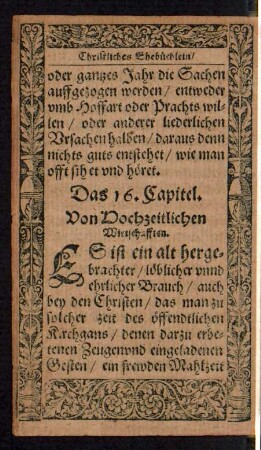 Christliches Ehebüchlein/
oder gantzes Jahr die Sachen
auffgezogen werden / entweder
vmb Hoffart oder Prachts wil-
len / oder anderer liederlichen
Vrsachen halben / daraus denn
nichts guts entstehet / wie man
offt sihet vnd höret.
Das 16. Capitel.
Von Hochzeitlichen
Wirtschafften.
ES ist ein alt herge-
brachter / löblicher vnnd
ehrlicher Brauch / auch
bey den Christen / das man zu
solcher zeit des öffentlichen
Kirchgans / denen darzu erbe-
tenen Zeugen vnd eingeladenen
Gesten / ein frewden Mahlzeit